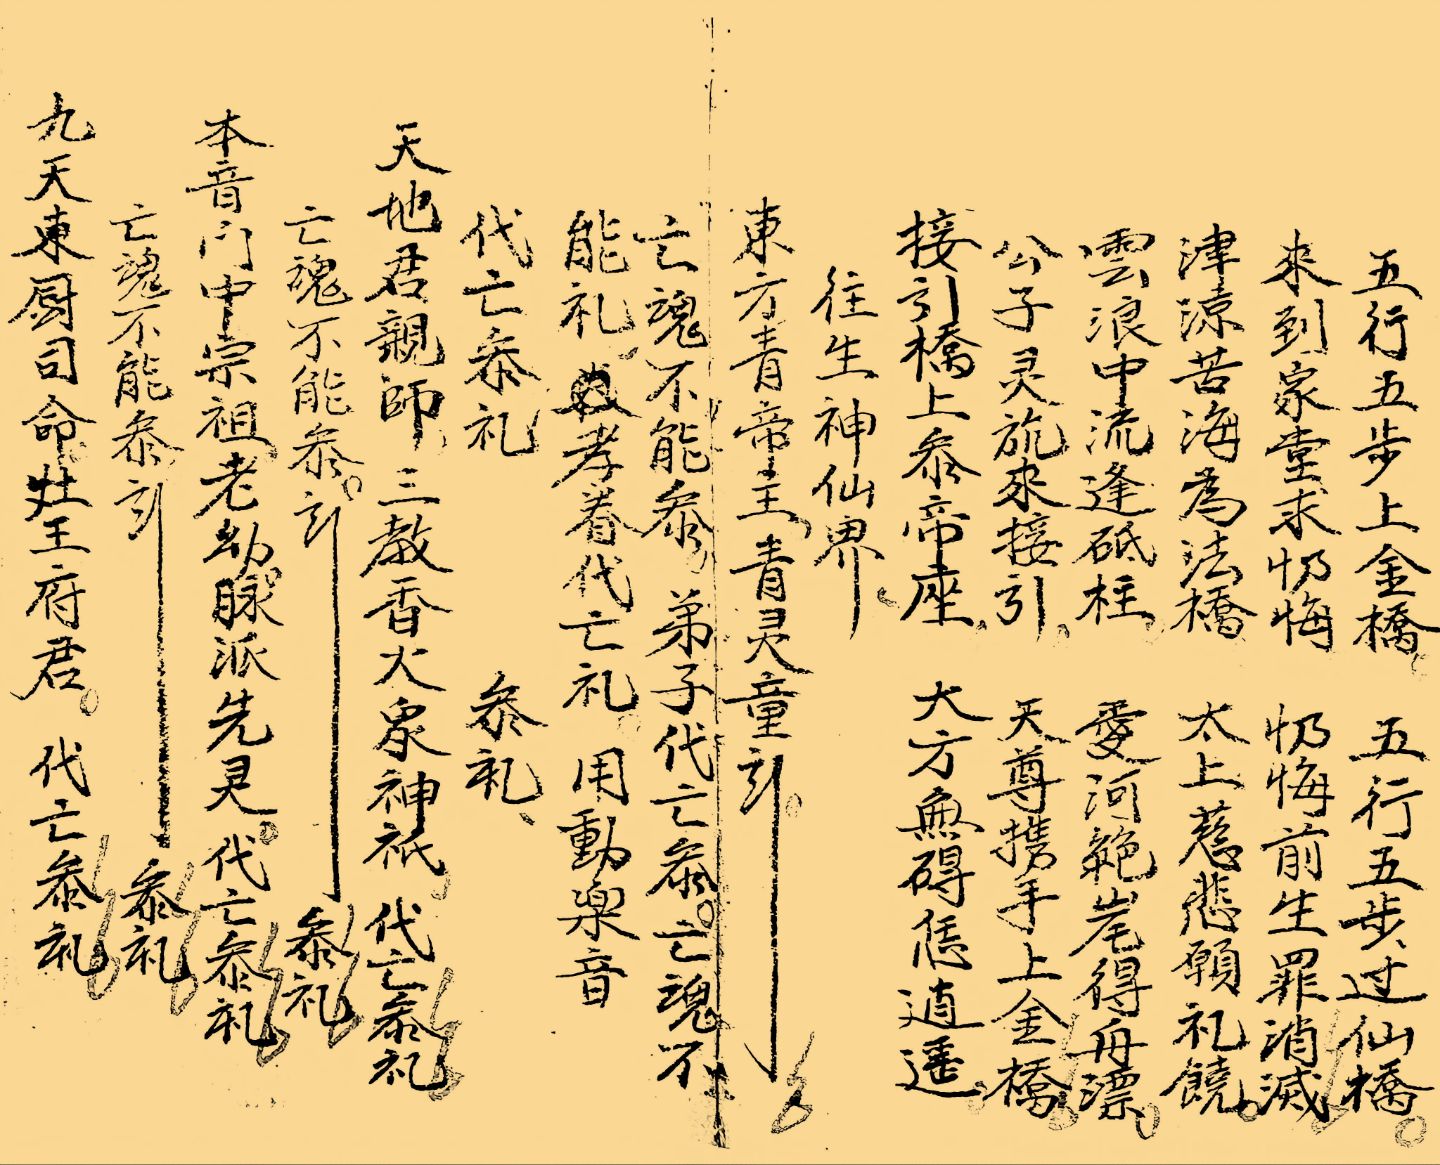 五行五步上金橋 五行五步过仙橋
來到家堂求忉悔 忉悔前生罪消滅
津涼苦海為法橋 太上慈悲願礼饒
雲浪中流逢砥柱 愛河絶岸得舟漂
公子灵旊來接引 天尊携手上金橋
接引橋上叅帝座 大方無碍恁逍遥
往生神仙界
東方青帝主青灵童引
亡魂不能叅 弟子代亡叅 亡魂不
能礼 孝眷代亡礼 用動楽音
代亡叅礼 叅礼
天地君親師 三教香火衆神祇 代亡叅礼
亡魂不能叅引 叅礼
本音门中宗祖老幼脉派先灵 代亡叅礼
亡魂不能叅引 叅礼
九天東厨司命灶王府君 代亡叅礼